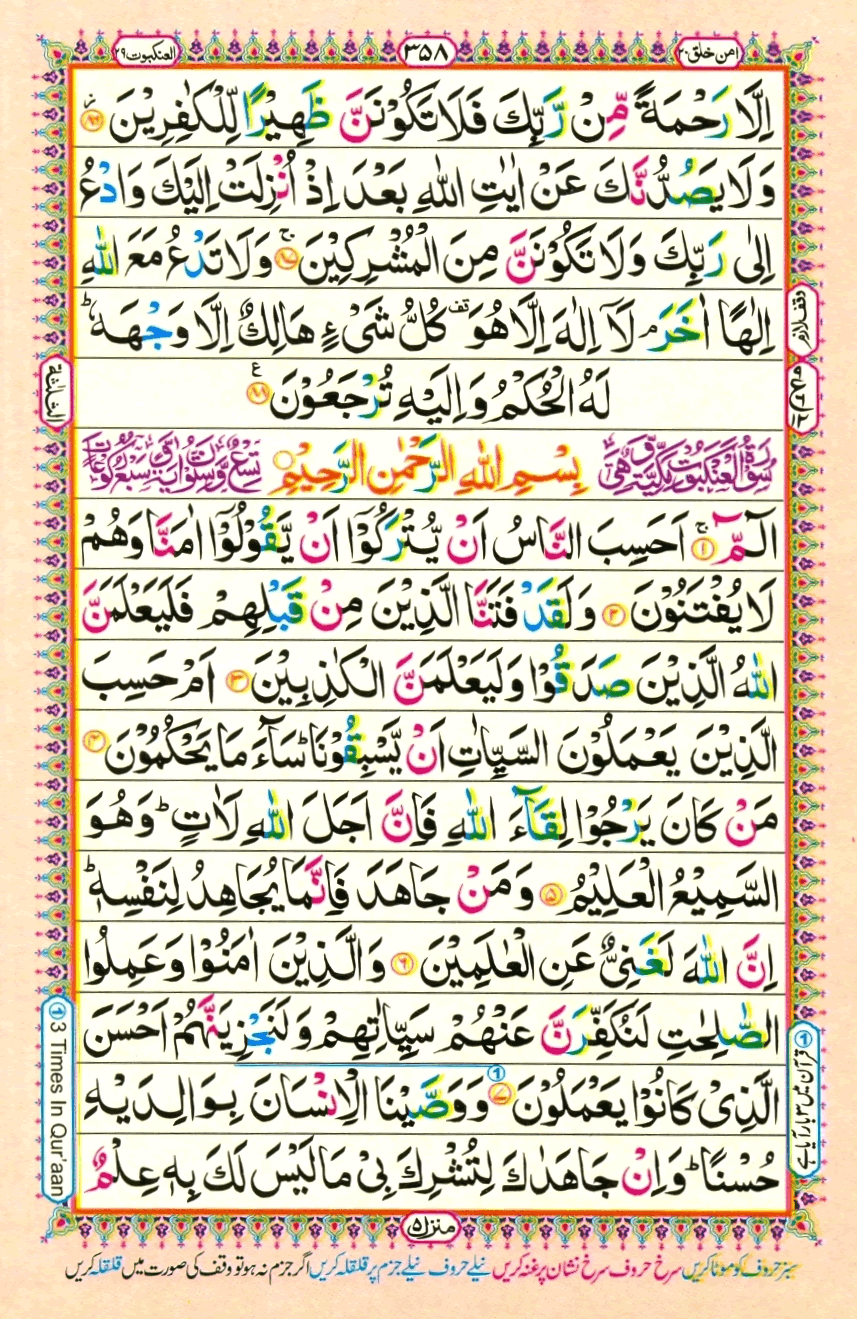 امن خلق ٢٠
٣٥٨
العنكبوت ٢٩
اِلَّا رَحْمَةً مِّنْ رَّبِّكَ فَلَا تَكُوْنَنَّ ظَهِيْرًا لِّلْكٰفِرِيْنَ ﴿٨٦﴾
وَلَا يَصُدُّنَّكَ عَنْ اٰيٰتِ اللّٰهِ بَعْدَ اِذْ اُنْزِلَتْ اِلَيْكَ وَادْعُ
اِلٰى رَبِّكَ وَلَا تَكُوْنَنَّ مِنَ الْمُشْرِكِيْنَ ۚ﴿٨٧﴾ وَلَا تَدْعُ مَعَ اللّٰهِ
اِلٰهًا اٰخَرَ ۘ لَاۤ اِلٰهَ اِلَّا هُوَ قف كُلُّ شَيْءٍ هَالِكٌ اِلَّا وَجْهَهٗ ؕ
لَهُ الْحُكْمُ وَاِلَيْهِ تُرْجَعُوْنَ ﴿٨٨﴾ ع
سُوْرَةُ الْعَنْكَبُوْتِ مَكِّيَّةٌ وَّهِيَ
بِسْمِ اللّٰهِ الرَّحْمٰنِ الرَّحِيْمِ
تِسْعٌ وَّسِتُّوْنَ اٰيَةً وَّسَبْعُ رُكُوْعَاتٍ
الٓمّٓ ۚ﴿١﴾ اَحَسِبَ النَّاسُ اَنْ يُّتْرَكُوْۤا اَنْ يَّقُوْلُوْۤا اٰمَنَّا وَهُمْ
لَا يُفْتَنُوْنَ ﴿٢﴾ وَلَقَدْ فَتَنَّا الَّذِيْنَ مِنْ قَبْلِهِمْ فَلَيَعْلَمَنَّ
اللّٰهُ الَّذِيْنَ صَدَقُوْا وَلَيَعْلَمَنَّ الْكٰذِبِيْنَ ﴿٣﴾ اَمْ حَسِبَ
الَّذِيْنَ يَعْمَلُوْنَ السَّيِّاٰتِ اَنْ يَّسْبِقُوْنَا ؕ سَآءَ مَا يَحْكُمُوْنَ ﴿٤﴾
مَنْ كَانَ يَرْجُوْا لِقَآءَ اللّٰهِ فَاِنَّ اَجَلَ اللّٰهِ لَاٰتٍ ؕ وَهُوَ
السَّمِيْعُ الْعَلِيْمُ ﴿٥﴾ وَمَنْ جَاهَدَ فَاِنَّمَا يُجَاهِدُ لِنَفْسِهٖ ؕ
اِنَّ اللّٰهَ لَغَنِيٌّ عَنِ الْعٰلَمِيْنَ ﴿٦﴾ وَالَّذِيْنَ اٰمَنُوْا وَعَمِلُوا
الصّٰلِحٰتِ لَنُكَفِّرَنَّ عَنْهُمْ سَيِّاٰتِهِمْ وَلَنَجْزِيَنَّهُمْ اَحْسَنَ
الَّذِيْ كَانُوْا يَعْمَلُوْنَ ﴿٧﴾ وَوَصَّيْنَا الْاِنْسَانَ بِوَالِدَيْهِ
حُسْنًا ؕ وَاِنْ جَاهَدٰكَ لِتُشْرِكَ بِيْ مَا لَيْسَ لَكَ بِهٖ عِلْمٌ
وقف لازم
الثلثة
① قرآن میں ۳ بار آیا ہے
① 3 Times In Qur'aan
منزل ٥
سبز حروف کو موٹا کریں سرخ حروف سرخ نشان پر غنہ کریں نیلے حروف نیلے جزم پر قلقلہ کریں اگر جزم نہ ہو تو وقف کی صورت میں قلقلہ کریں